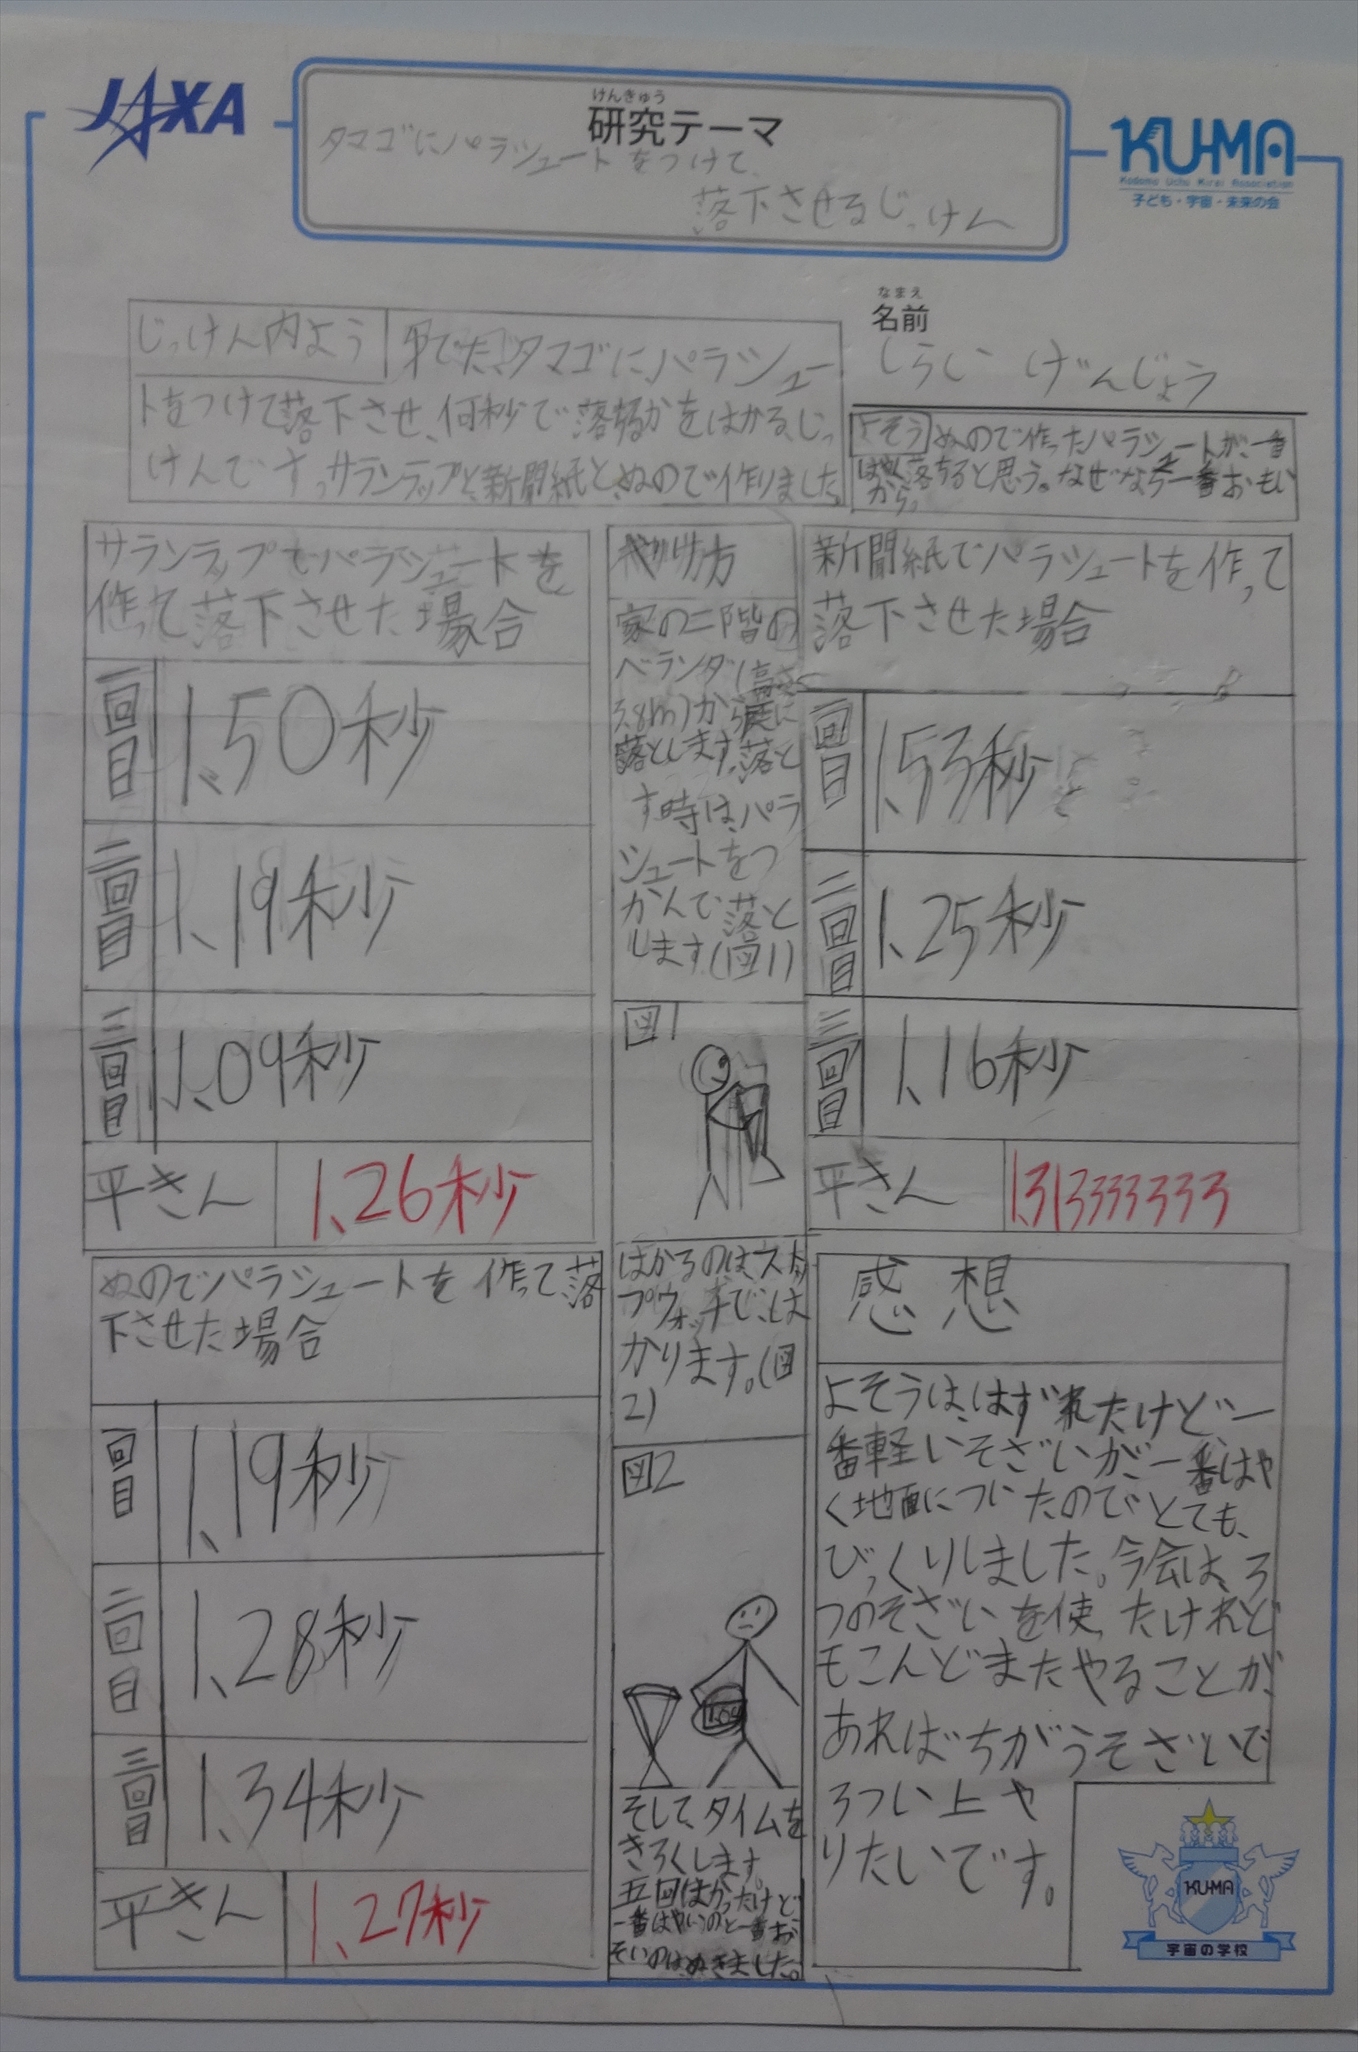 JAXA
けんきゅう
研究テーマ
タマゴにパラシュートをつけて
落下させるじっけん
KUMA
Kodomo Uchu Mirai Association
子ども・宇宙・未来の会
なまえ
名前
しらい げんじょう
じっけん内よう
タマゴにパラシュー
トをつけて落下させ、何秒で落ちるかをはかる、じっ
けんです。サランラップと、新聞紙と、ぬので作りました。
よそう ぬので作ったパラシュートが、一番
はやく落ちると思う。なぜなら一番おもい
から。
サランラップでパラシュートを
作って落下させた場合
一回目 1.50秒
二回目 1.19秒
三回目 1.09秒
平きん 1.26秒
やり方
家の二階の
ベランダ(高さ
3.8m)から庭に
落とします。落と
す時は、パラ
シュートをつ
かんで落と
します(図1)
図1
はかるのは、ストッ
プウォッチで、は
かります。(図
2)
図2
そして、タイムを
きろくします。
五回はかったけど
一番はやいのと一番お
そいのは、ぬきました。
新聞紙でパラシュートを作って
落下させた場合
一回目 1.53秒
二回目 1.25秒
三回目 1.16秒
平きん 1.31333333
ぬのでパラシュートを作って、落
下させた場合
一回目 1.19秒
二回目 1.28秒
三回目 1.34秒
平きん 1.27秒
感想
よそうは、はずれたけど、一
番軽いそざいが、一番はや
く地面についたのでとても、
びっくりしました。今会は、3
つのそざいを使ったけれど
もこんどまたやることが、
あればちがうそざいで
3つい上や
りたいです。
KUMA
宇宙の学校